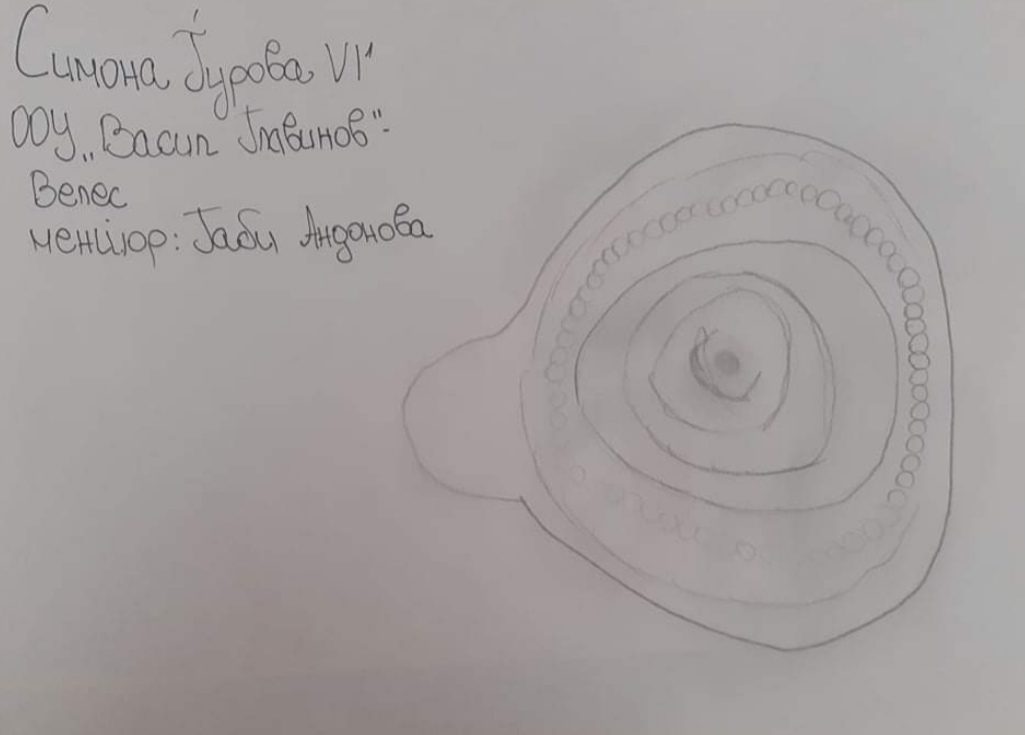 Симона Ѓурова VI¹
ООУ „Васил Главинов"-
Велес
ментор: Габи Андонова